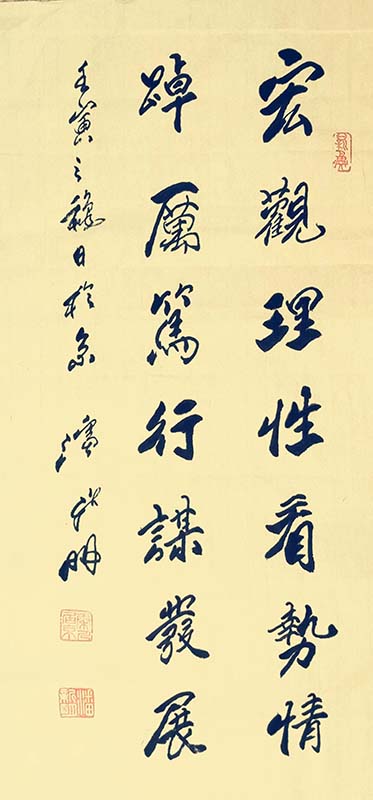 宏觀理性看勢情
踔厲篤行謀發展
壬寅之穐日於京 潘 明